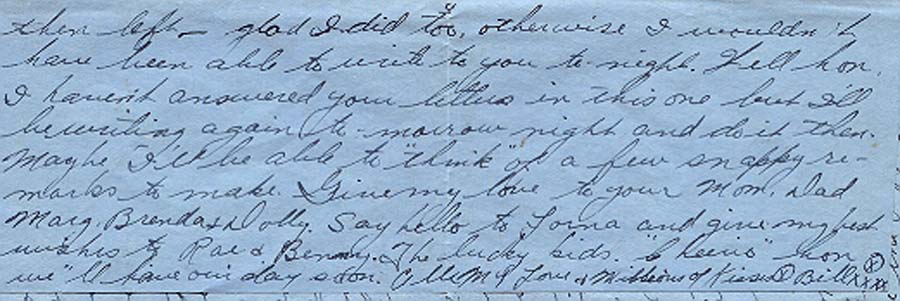 then left – glad I did too, otherwise I wouldn't
have been able to write to you to-night. Well hon,
I haven't answered your letters in this one but I'll
be writing again to-morrow night and do it then.
Maybe I'll be able to "think" of a few snappy re-
marks to make. Give my love to your Mom, Dad
Marg, Brenda & Dolly. Say hello to Lorna and give my best
wishes to Rae & Benny. The lucky kids. "Cheerio" hon
we'll have our day soon. All My Love & Millions of Kisses Bill xxxx